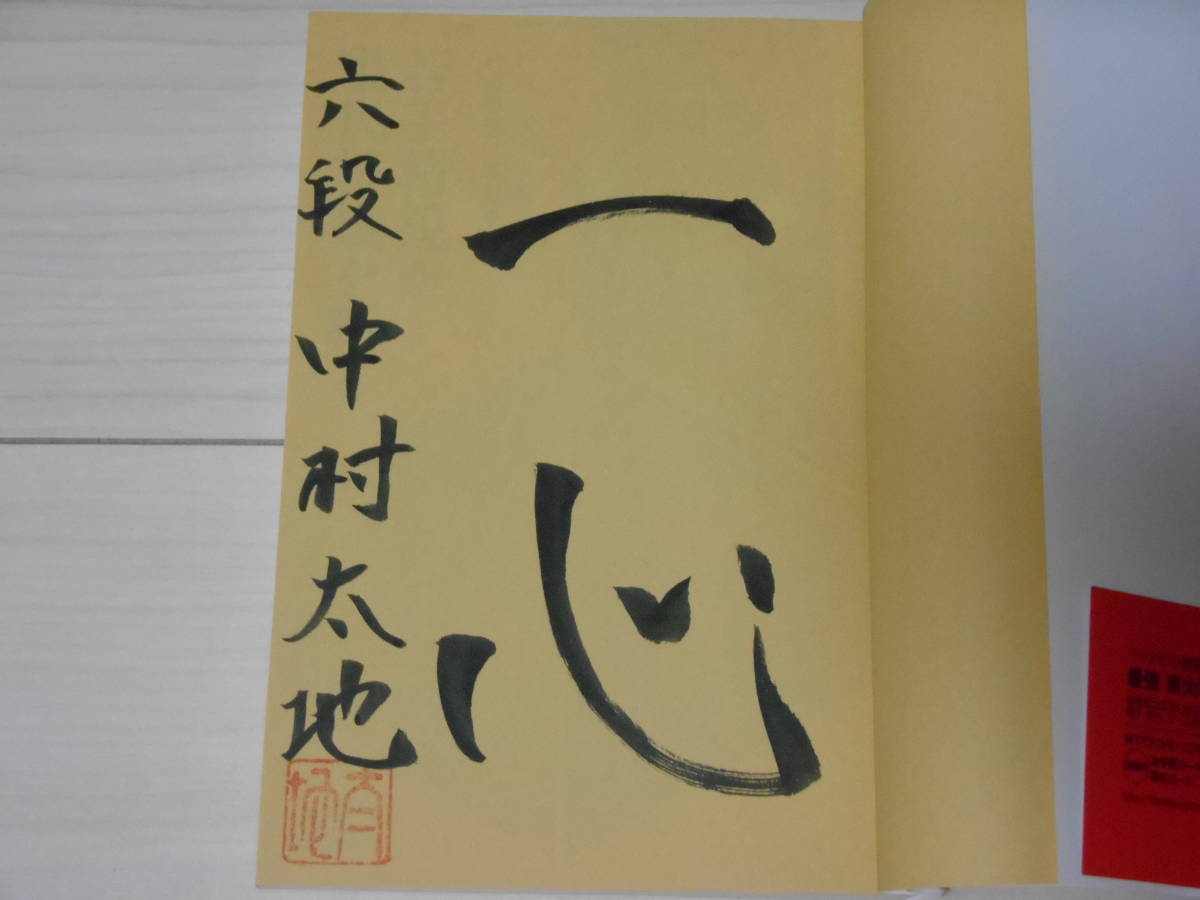 一心
六段 中村太地
太地